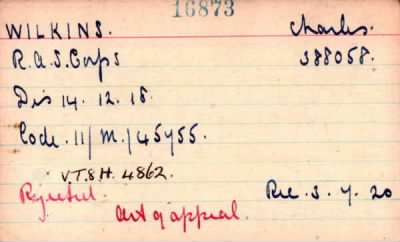 16873
WILKINS. Charles.
R.A.S. Corps 388058.
Dis 14. 12. 18.
Code. 11/M./45455.
V.T.8H. 4862.
Rejected. Rec. 3. 7. 20
Out of appeal.